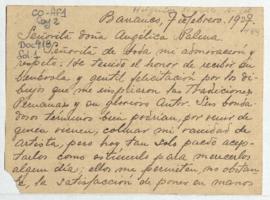 CO-AP1
Doc 918/2
Bananes, 7 Febrero, 1909.
Señorita doña Angélica Palma
Señorita de toda mi admiración y
respeto: He tenido el honor de recibir su
y gentil felicitación por los di-
bujos que me inspiraron las Tradiciones
Peruanas y su glorioso Autor. Sus bonda-
dosos términos bien podrían, por venir de
quien vienen, colmar mi vanidad de
artista, pero hoy tan solo puedo acep-
tarlos como estímulo para merecerlos
algun dia; ellos me permiten, no obstan-
te, la satisfacción de poner en manos